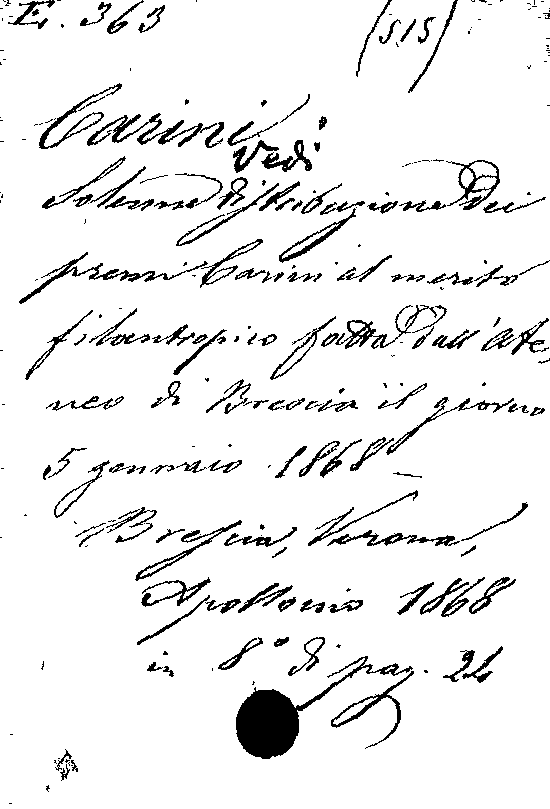 E. 363 (515)
Carini
vedi
Solenne distribuzione dei
premi Carini al merito
filantropico fatta dall'Ate,
neo di Brescia il giorno
5 gennaio 1868 –
Brescia, Verona,
Apollonio 1868
in 8° di pag. 24